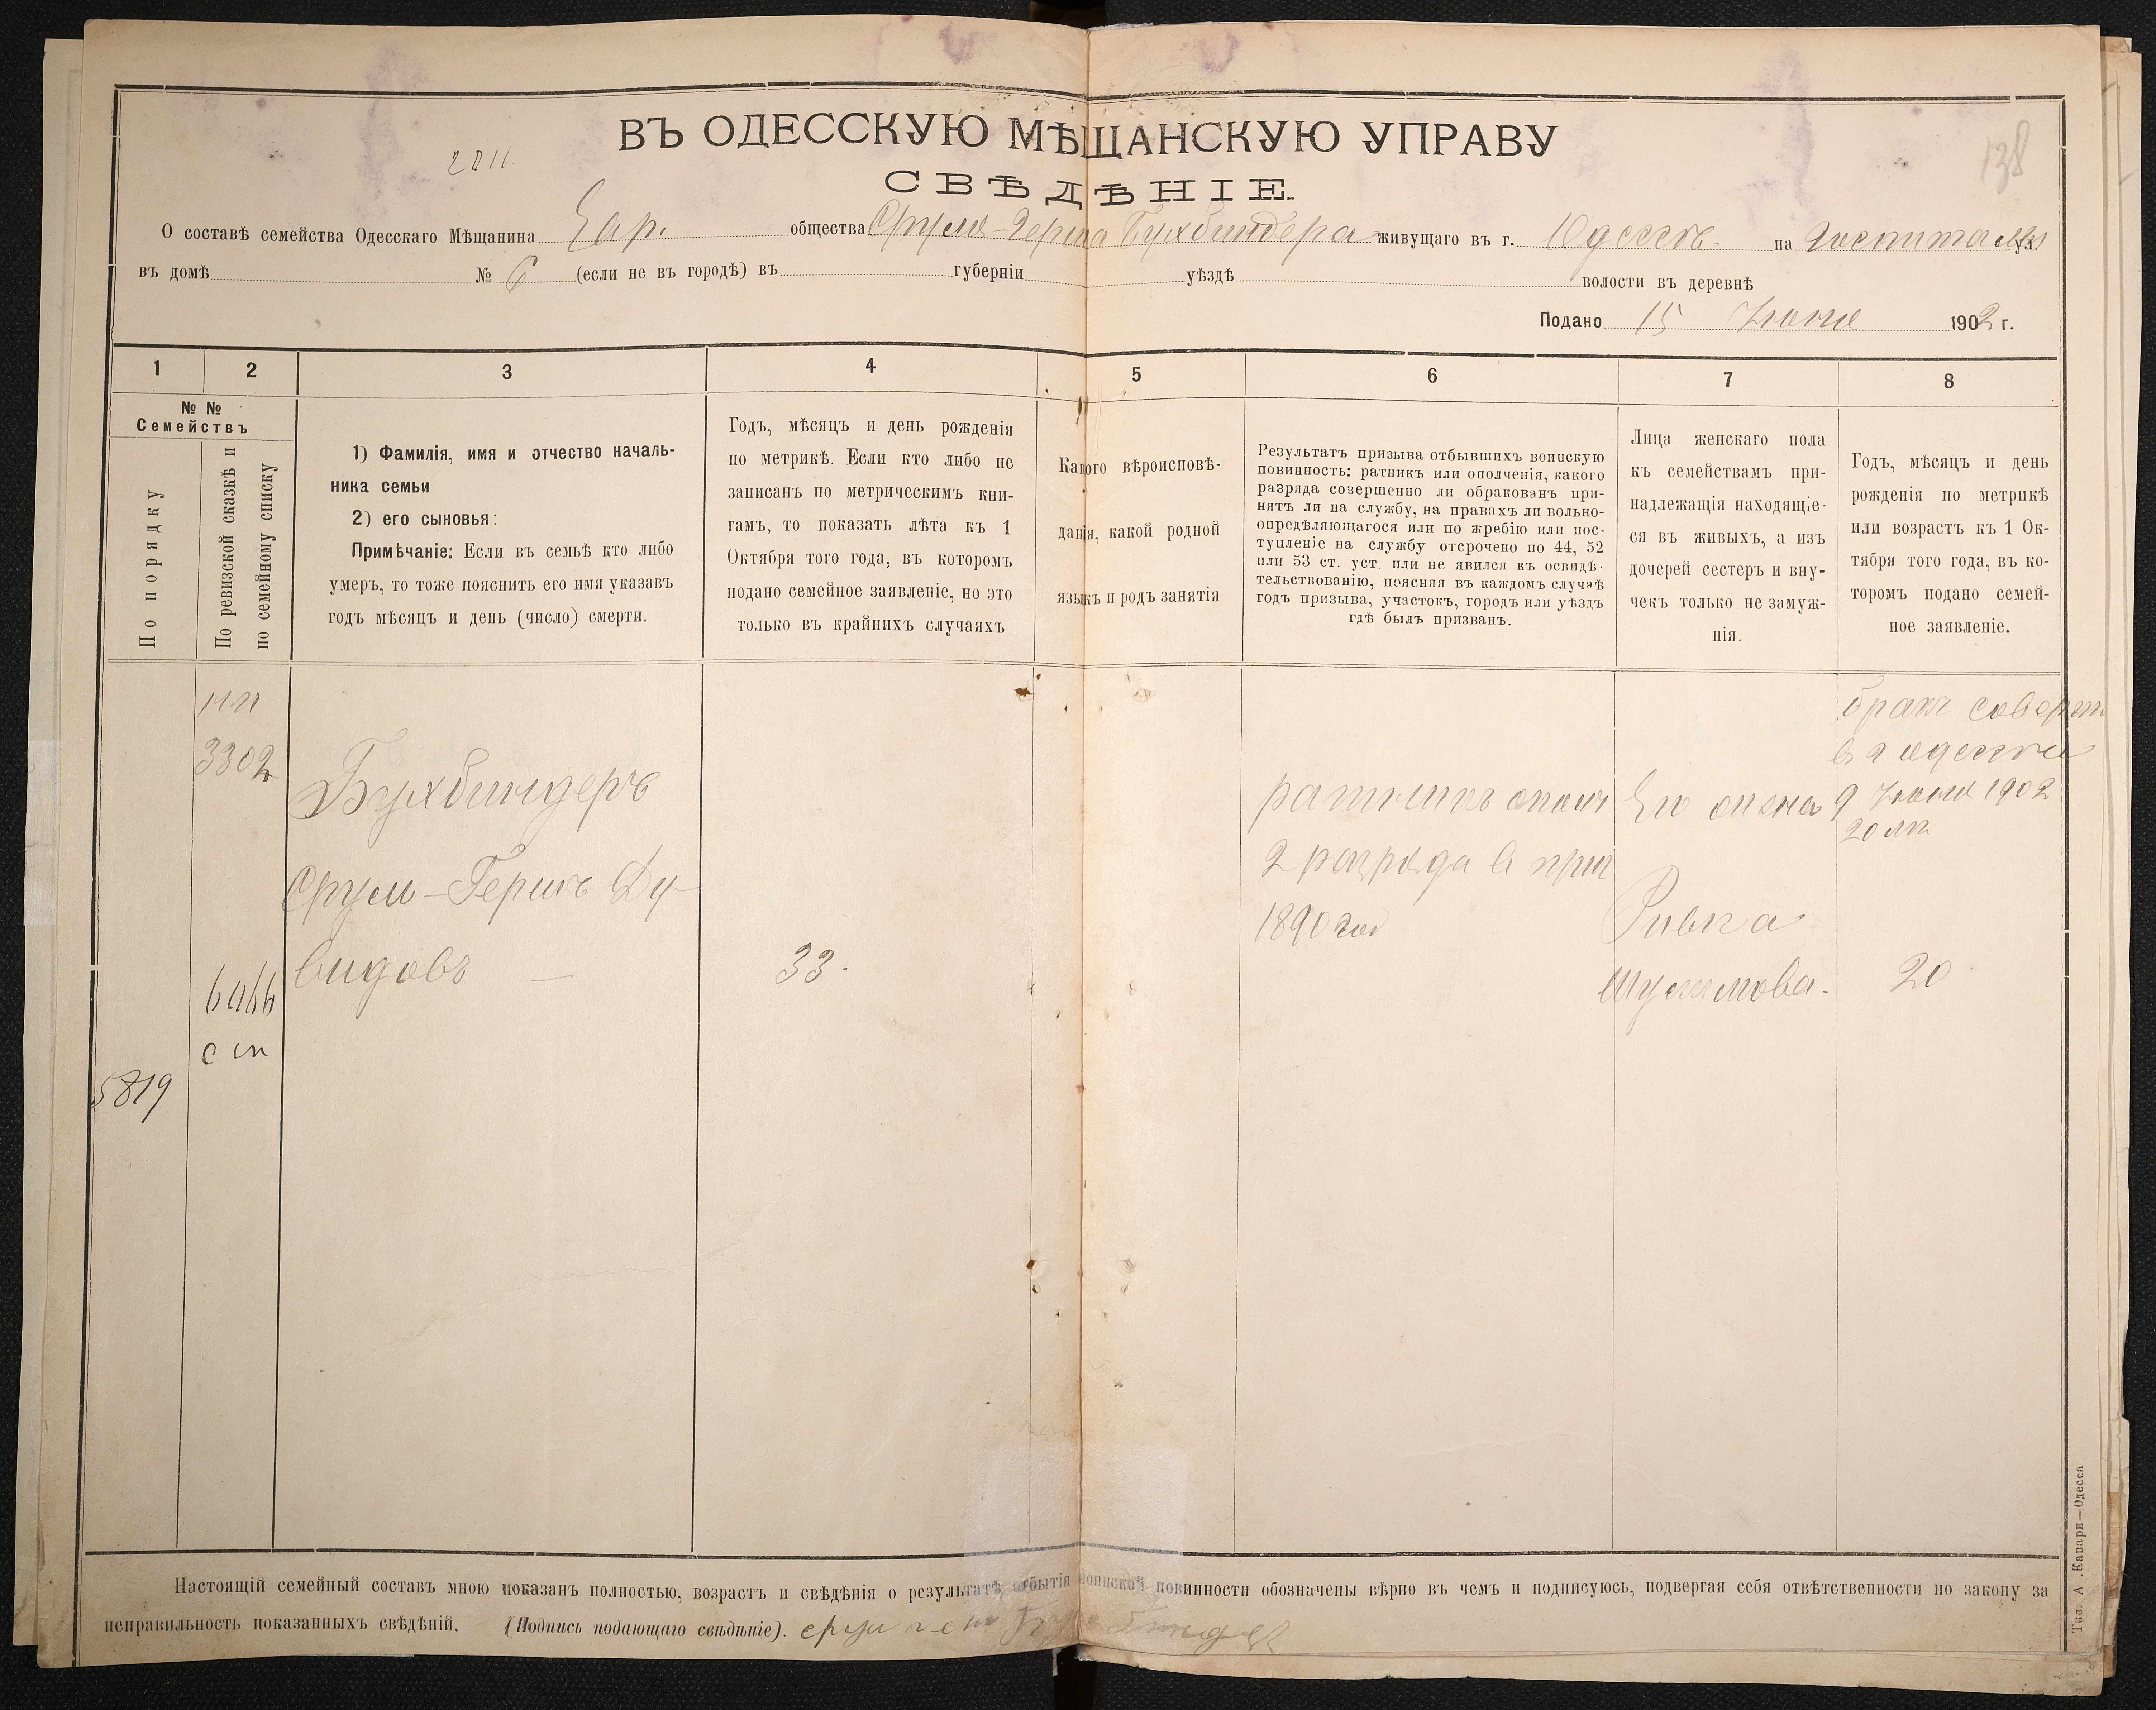 138
ВЪ ОДЕССКУЮ МѢЩАНСКУЮ УПРАВУ
2811
СВѢДѢНІЕ.
О составѣ семейства Одесскаго Мѣщанина Евр. общества Сруля-Герша Бухбиндера живущаго въ г. Одессѣ на Госпитальн ул.
въ домѣ № 6 (если не въ городѣ) въ губерніи уѣздѣ волости въ деревнѣ
Подано 15 Іюня 1902 г.
1 2 3 4 5 6 7 8
№ №
Семействъ
По порядку
По ревизской сказкѣ и
по семейному списку
1) Фамилія, имя и отчество началь-
ника семьи
2) его сыновья:
Примѣчаніе: Если въ семьѣ кто либо
умеръ, то тоже пояснить его имя указавъ
годъ мѣсяцъ и день (число) смерти.
Годъ, мѣсяцъ и день рожденія
по метрикѣ. Если кто либо не
записанъ по метрическимъ кни-
гамъ, то показать лѣта къ 1
Октября того года, въ которомъ
подано семейное заявленіе, но это
только въ крайнихъ случаяхъ
Какого вѣроисповѣ-
данія, какой родной
языкъ и родъ занятія
Результатъ призыва отбывшихъ воинскую
повинность: ратникъ или ополченія, какого
разряда совершенно ли обракованъ при-
нятъ ли на службу, на правахъ ли вольно-
опредѣляющагося или по жребію или пос-
тупленіе на службу отсрочено по 44, 52
или 53 ст. уст. или не явился къ освидѣ-
тельствованію, поясняя въ каждомъ случаѣ
годъ призыва, участокъ, городъ или уѣздъ
гдѣ былъ призванъ.
Лица женскаго пола
къ семействамъ при-
надлежащія находящіе-
ся въ живыхъ, а изъ
дочерей сестеръ и вну-
чекъ только не замуж-
нія.
Годъ, мѣсяцъ и день
рожденія по метрикѣ
или возрастъ къ 1 Ок-
тября того года, въ ко-
торомъ подано семей-
ное заявленіе.
3302
5819
Бухбиндеръ
Срул-Гершъ Ду-
видовъ —
33.
ратникъ ополч
2 разряда в приз
1890 год
Его жена
Ривка
20
бракъ соверш
в г Одессе
9 Іюня 1902
20 лѣт
Настоящій семейный составъ мною показанъ полностью, возрастъ и свѣдѣнія о результатѣ отбытія воинской повинности обозначены вѣрно въ чемъ и подписуюсь, подвергая себя отвѣтственности по закону за
неправильность показанныхъ свѣдѣній. (Подпись подающаго свѣдѣніе). срул герш Бухбиндер
Тип. А. Капари—Одесса